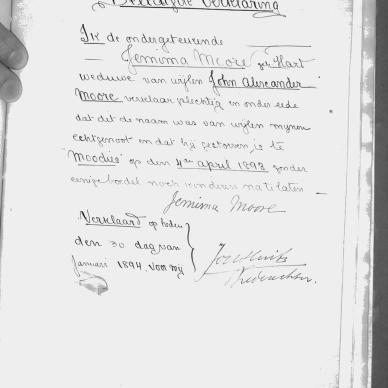 Beëedigde Verklaring
Ik de ondergeteekende
Jemima Moore geb Hart
weduwe van wijlen John Alexander
Moore verklaar plechtig en onder eede
dat dit de naam was van wijlen mynen
echtgenoot en dat hij gestorven is te
"Moodies" op den 4den April 1893 zonder
eenige boedel noch kinderen na te laten
Jemima Moore
Verklaard op heden
den 30 dag van
Januari 1894. voor mij
Vrederechter.